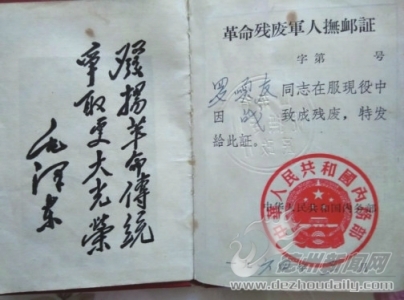 發揚革命傳統
爭取更大光榮
毛澤东
革命残废軍人撫邮証
字第 号
同志在服現役中
因 战 致成残废，特发
给此証。
中华人民共和国内务部
中華人民共和國內務部
德州新闻网
www.dezhoudaily.com